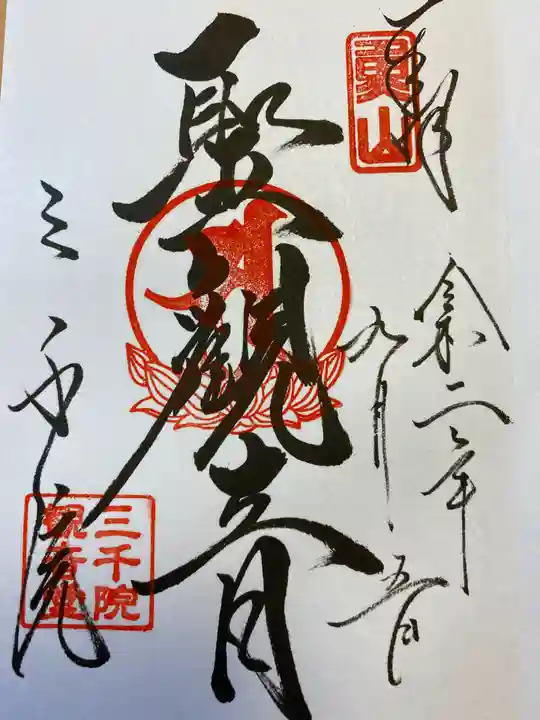 奉拝
魚山
令和二年
九月五日
聖観音
三千院
三千院
観音堂